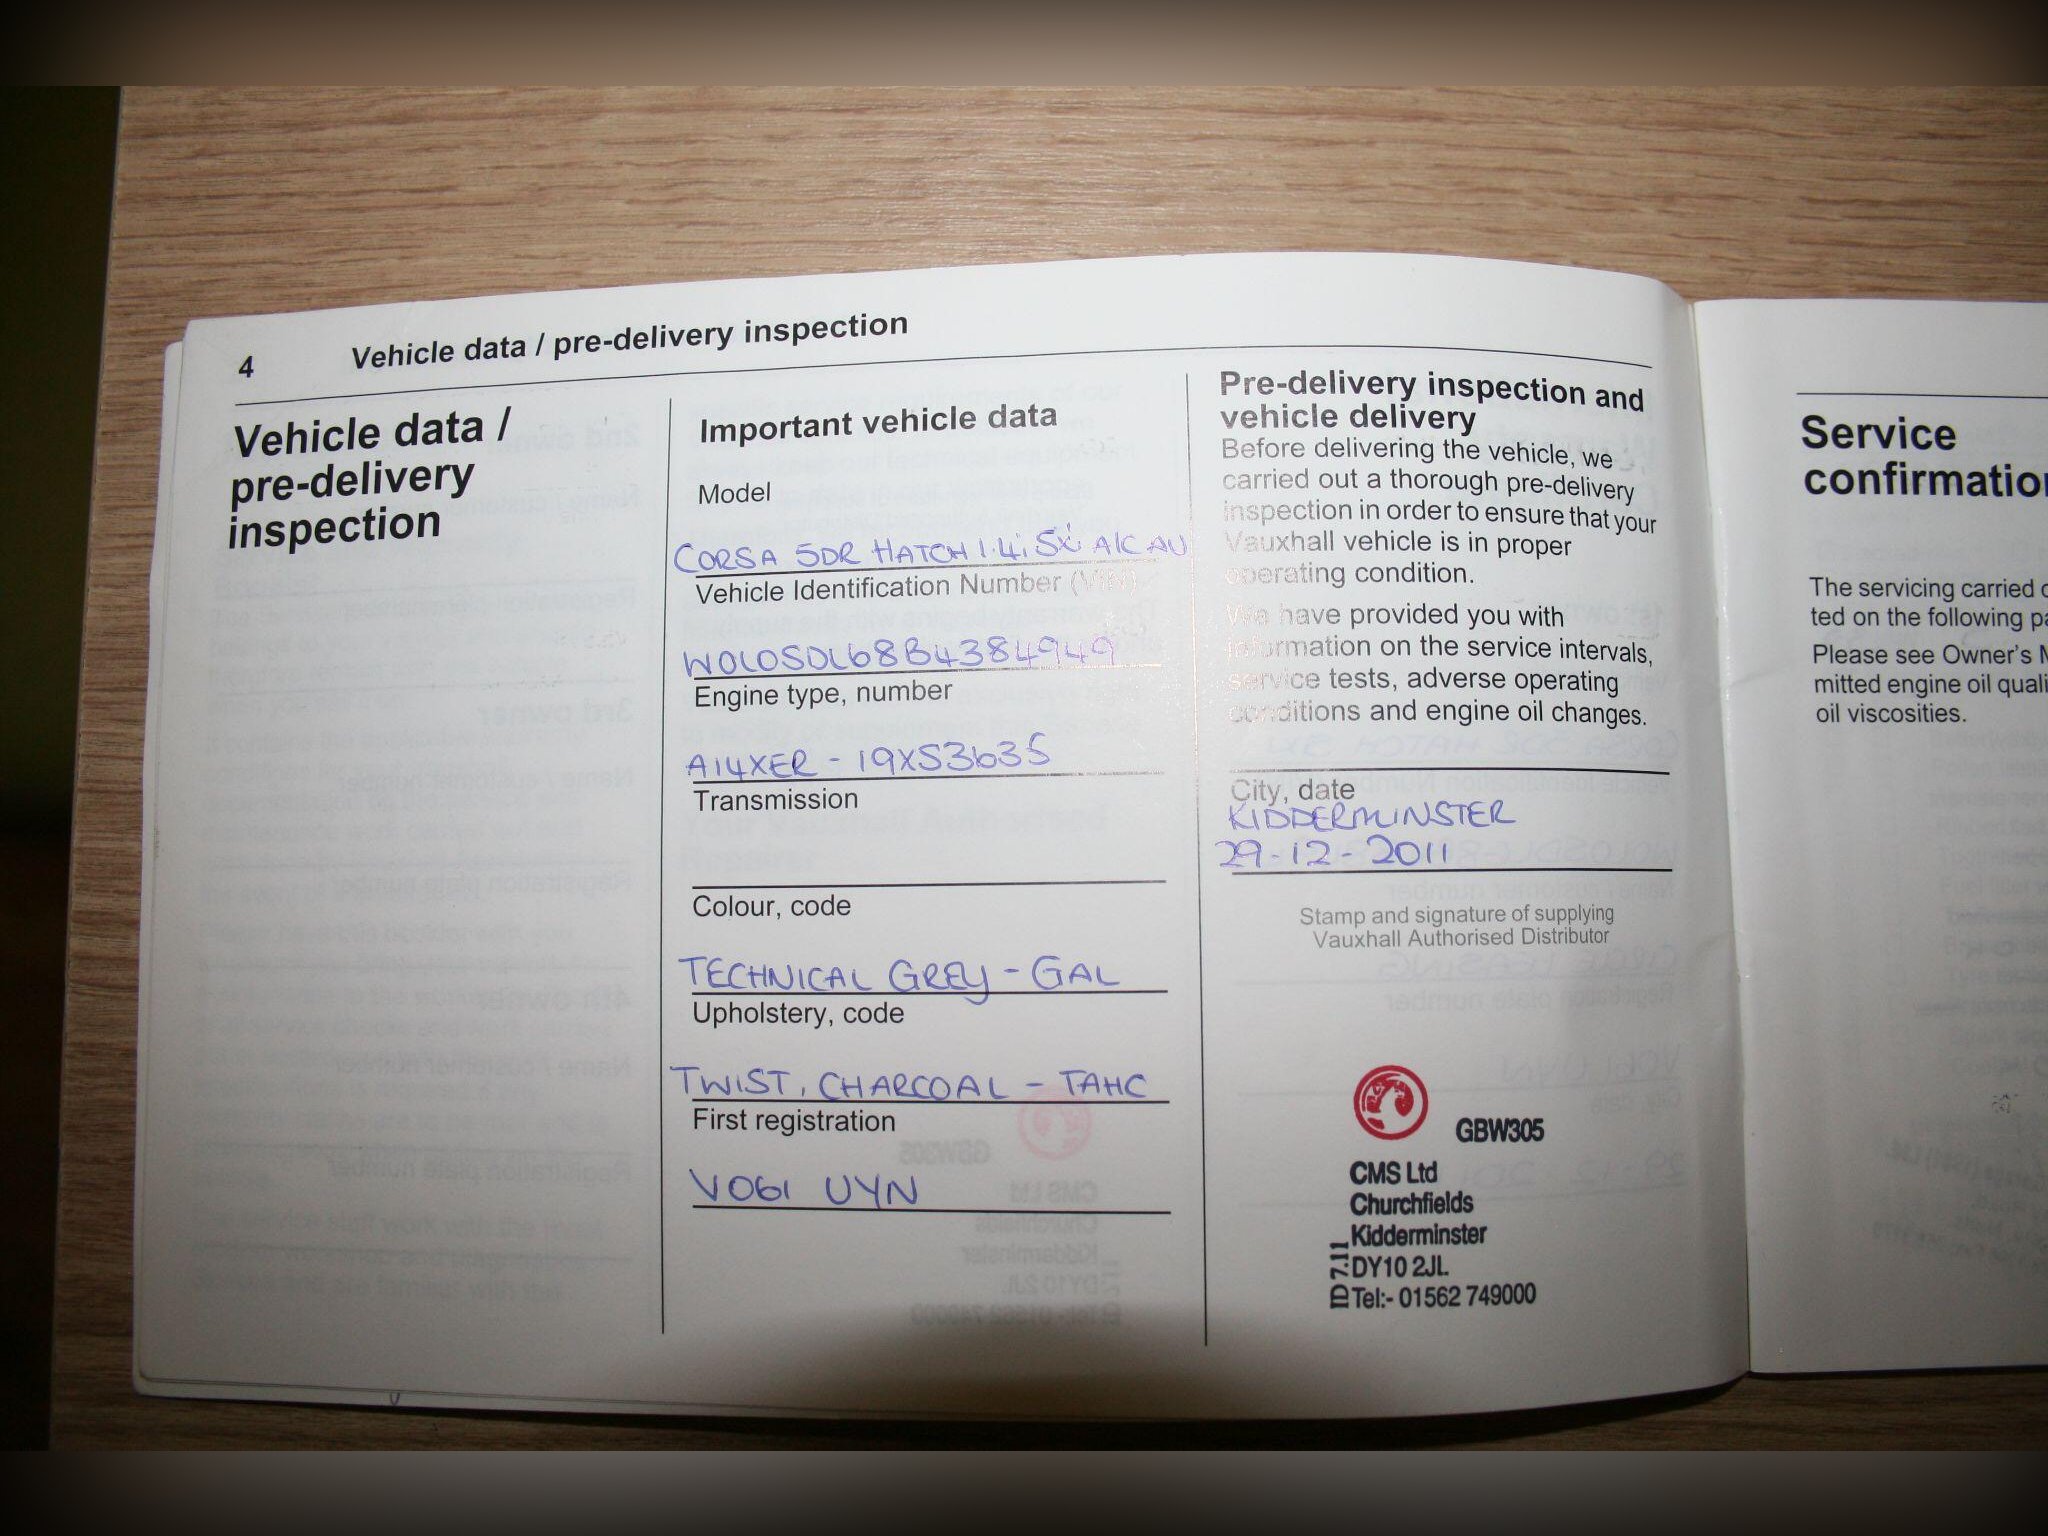 4 Vehicle data / pre-delivery inspection
Vehicle data /
pre-delivery
inspection
Important vehicle data
Model
CORSA 5DR HATCH 1.4i SXi A/C AU
Vehicle Identification Number (VIN)
W0L0SDL68B4384949
Engine type, number
A14XER - 19XS3635
Transmission
Colour, code
TECHNICAL GREY - GAL
Upholstery, code
TWIST, CHARCOAL - TAHC
First registration
VO61 UYN
Pre-delivery inspection and
vehicle delivery
Before delivering the vehicle, we
carried out a thorough pre-delivery
inspection in order to ensure that your
Vauxhall vehicle is in proper
operating condition.
We have provided you with
information on the service intervals,
service tests, adverse operating
conditions and engine oil changes.
City, date
KIDDERMINSTER
29-12-2011
Stamp and signature of supplying
Vauxhall Authorised Distributor
GBW305
CMS Ltd
Churchfields
Kidderminster
DY10 2JL
Tel:- 01562 749000
ID 7.11
Service
confirmation
The servicing carried
ted on the following
Please see Owner's
mitted engine oil
oil viscosities.